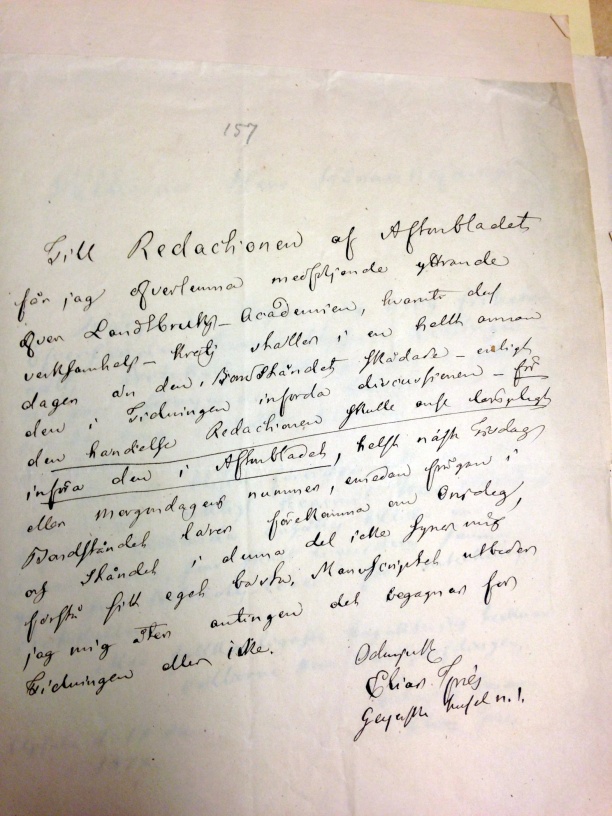 157
Till Redactionen af Aftonbladet
får jag öfverlemna medföljande yttrande
öfver Landtbruks-Academien, hvaruti dess
verksamhets-krets ställes i en helt annan
dagen än den i Bondeståndet skådats – enligt
den i Tidningen införda discussionen – för
den händelse Redactionen skulle anse
införa den i Aftonbladet, helst nästa Tisdag
eller morgondagens nummer, emedan frågan i
Bondeståndet lärer förekomma om Onsdag,
och Ståndet i denna del icke synes mig
förstå sitt eget bästa. Manuscriptet utbeder
jag mig åter antingen det begagnas för
Tidningen eller icke.
Ödmjukt
Elias
n. 1.